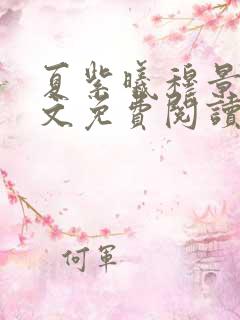 夏紫曦穆景
文免費閱讀
何軍